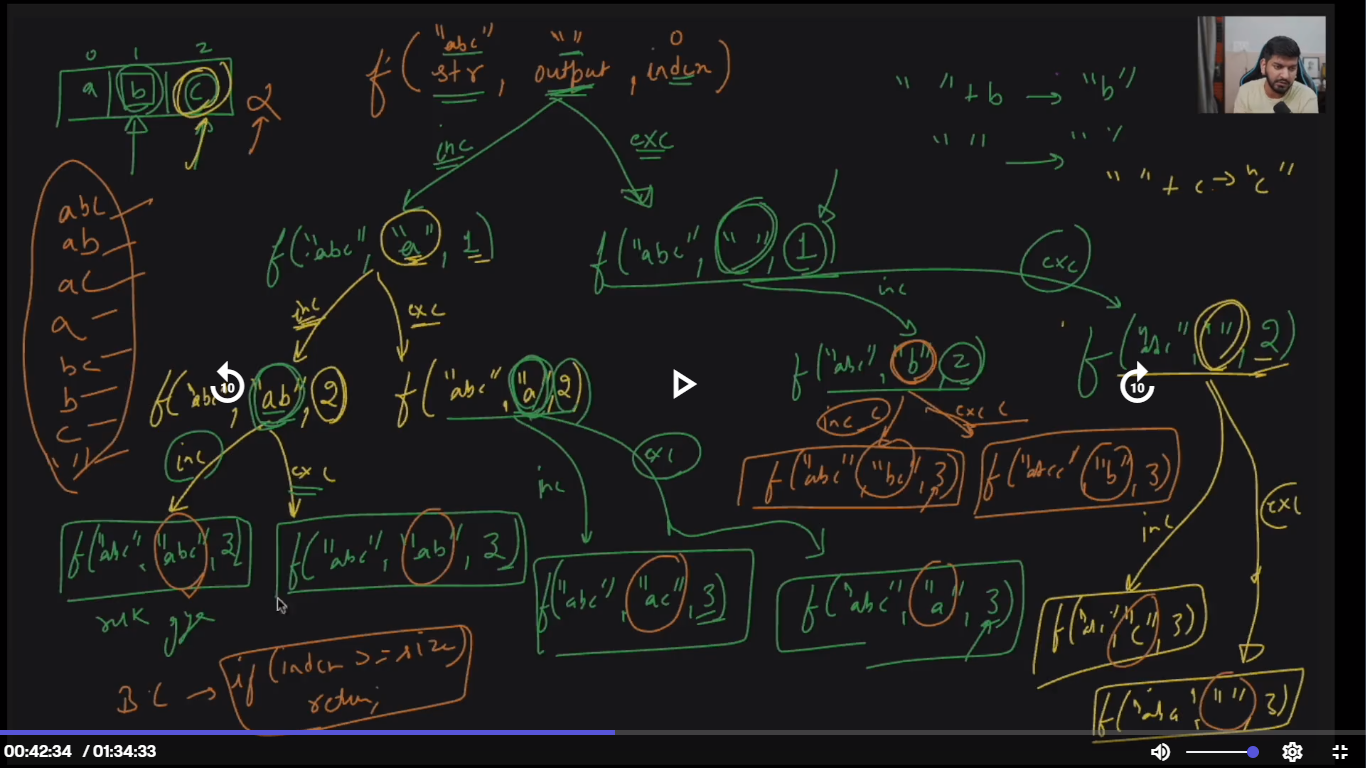 0 1 2
a b c
f("abc" str, "" output, 0 index)
inc
exc
" " + b → "b"
" " → " "
" " + c → "c"
abc
ab
ac
a
bc
b
c
" "
f("abc", "a", 1)
f("abc", " ", 1)
inc
exc
inc
exc
f("abc", "ab", 2)
f("abc", "a", 2)
f("abc", "b", 2)
f("abc", " ", 2)
10
10
inc
exc
inc
exc
inc c
exc c
inc
exc
f("abc", "abc", 3)
f("abc", "ab", 3)
f("abc", "ac", 3)
f("abc", "a", 3)
f("abc" "bc", 3)
f("abc" "b", 3)
f("abc", "c", 3)
f("abc", " ", 3)
ruk gya
B.C → if (index >= size)
return;
00:42:34 / 01:34:33